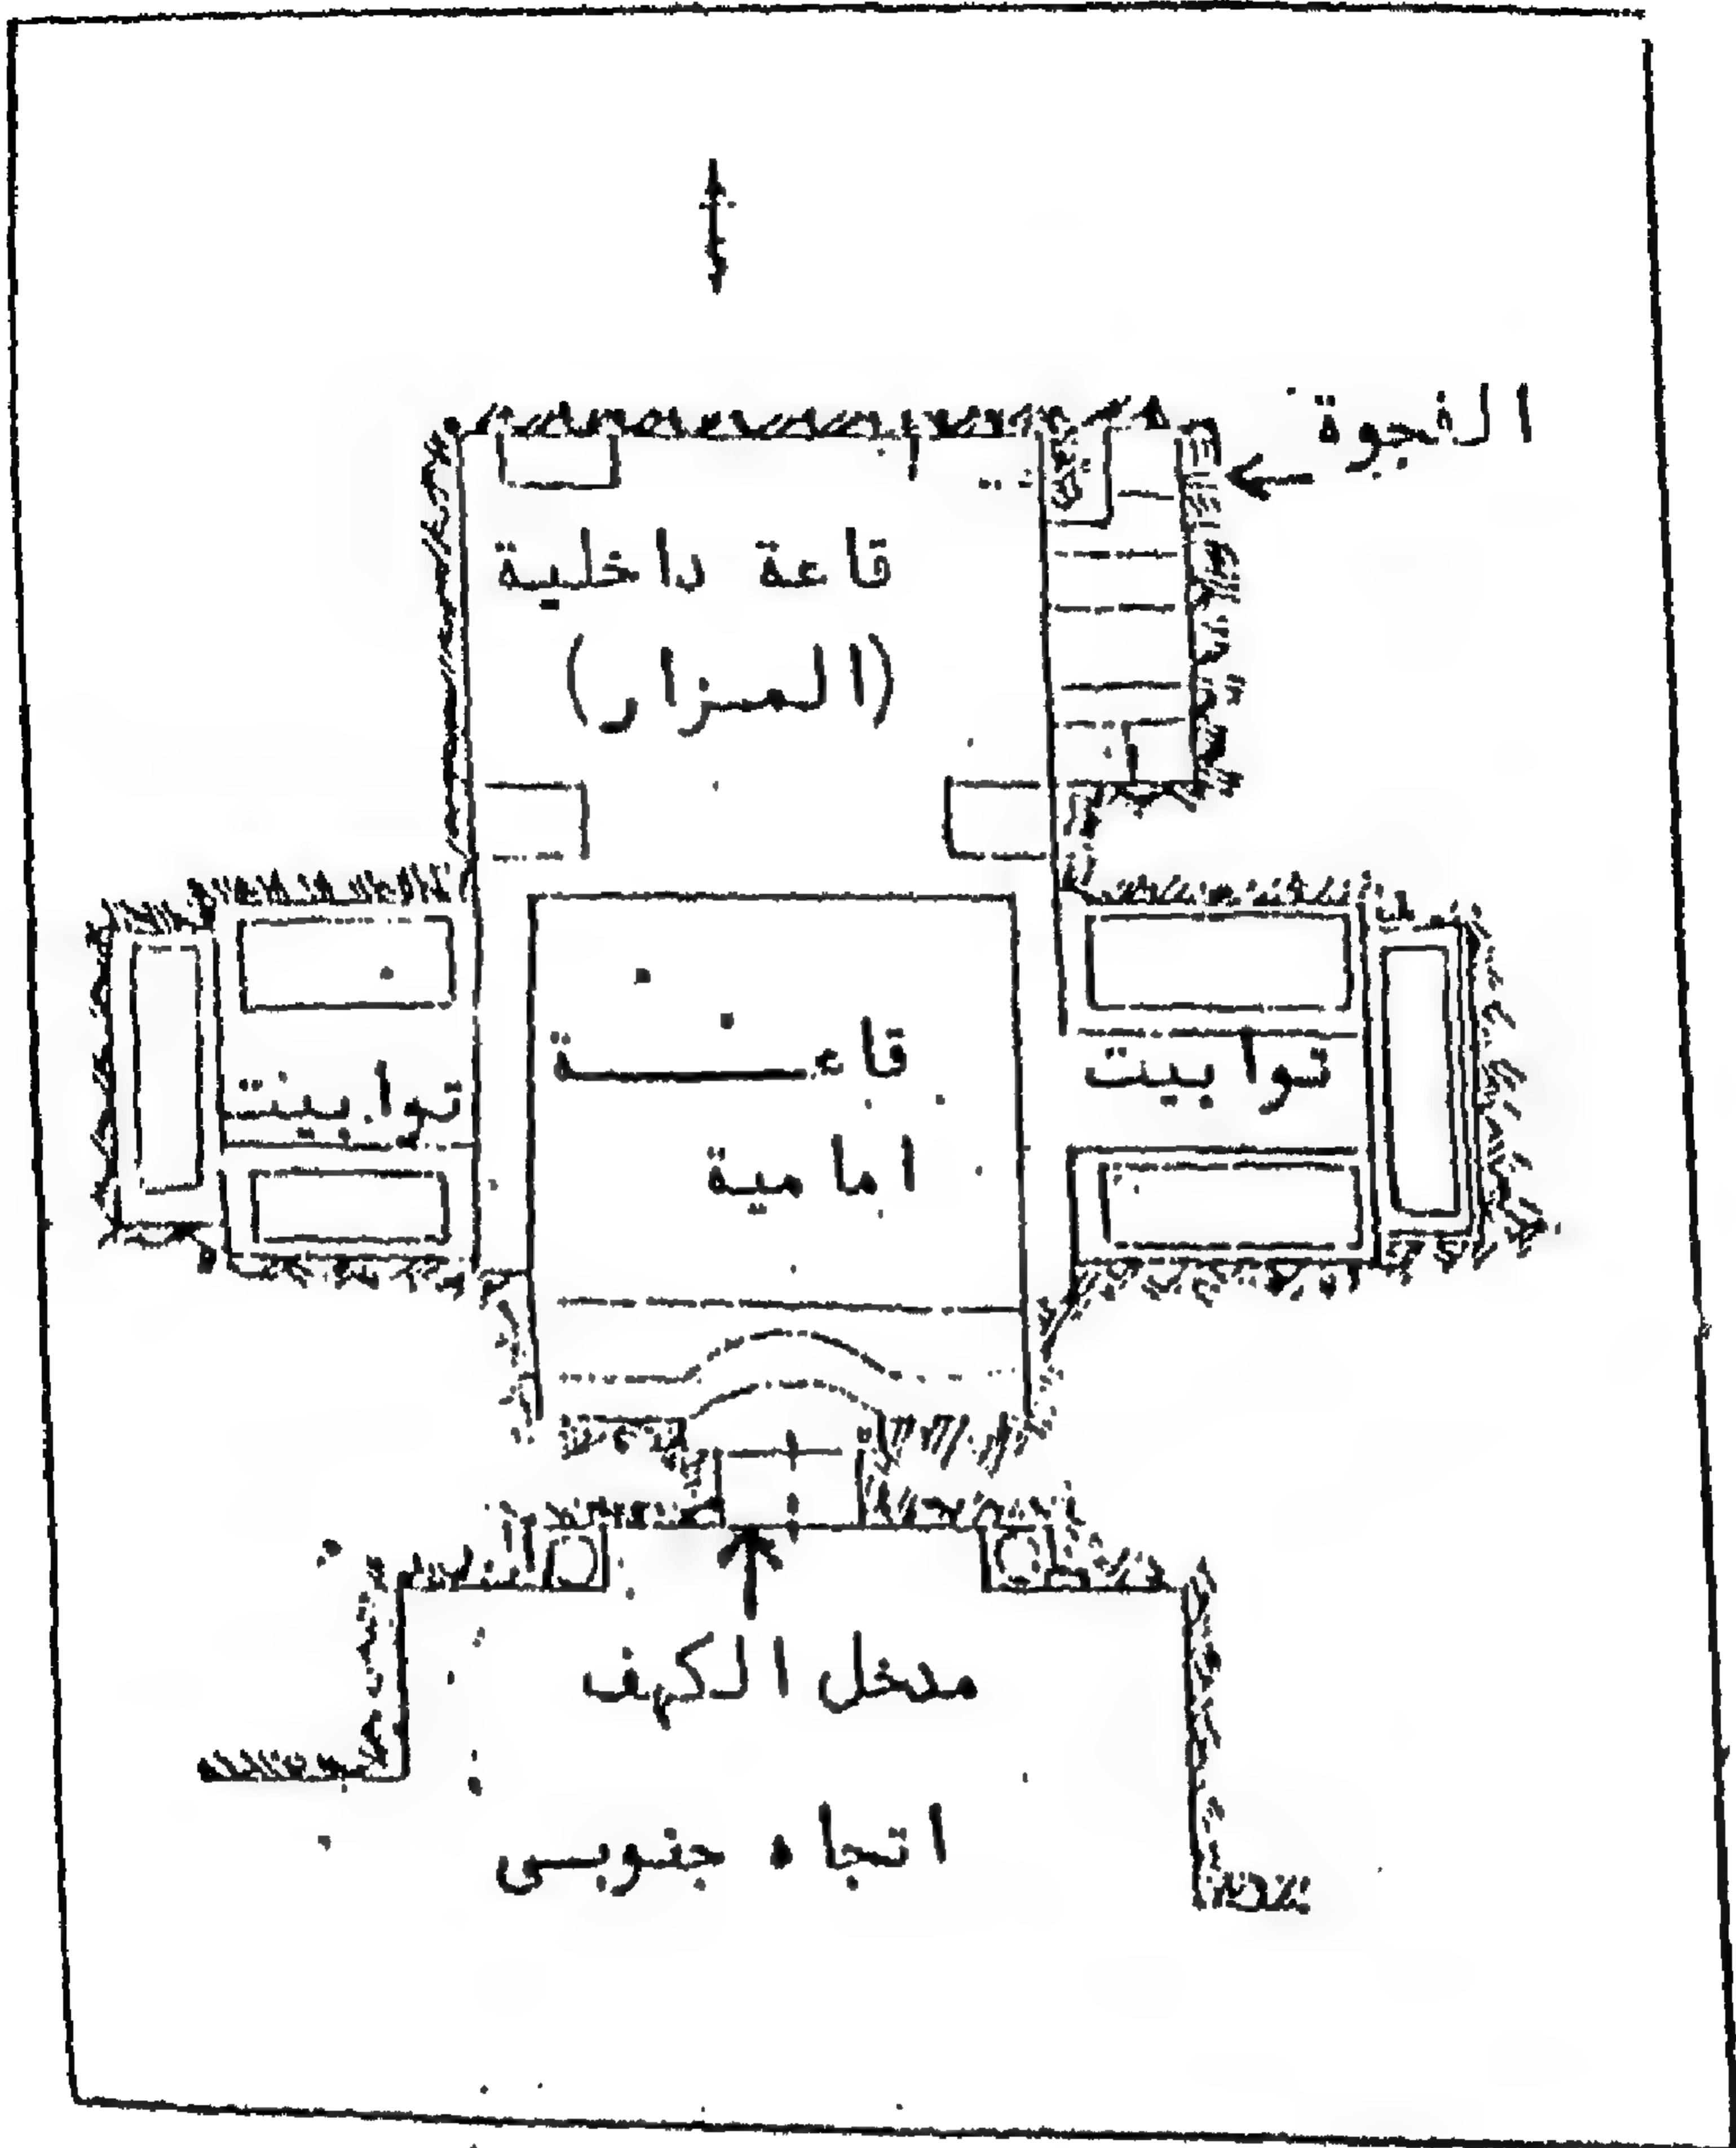 الفجوة
قاعة داخلية
(المزار)
توابيت
قاعـــــة
امامية
توابيت
مدخل الكهف
اتجاه جنوبى